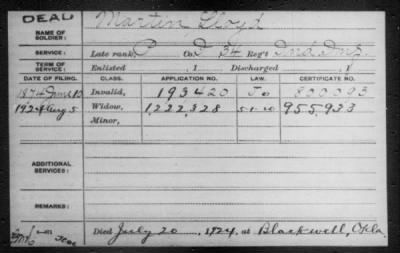 DEAD
NAME OF SOLDIER: Martin, Lloyd
SERVICE: Late rank, P Co. D 34 Reg't Ind. Inf.
TERM OF SERVICE: Enlisted , 1 Discharged , 1
DATE OF FILING. CLASS. APPLICATION NO. LAW. CERTIFICATE NO.
1874 June 10 Invalid, 193420 800093
1924 Aug 5 Widow, 1,222,328 5-1-20 955,933
Minor,
ADDITIONAL SERVICES:
REMARKS:
Died July 20, 1924, at Blackwell, Okla.